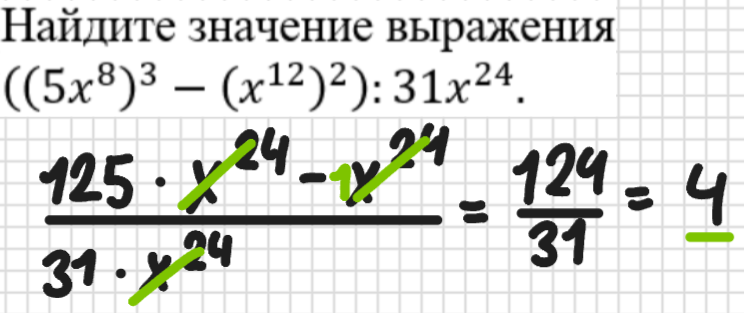 Найдите значение выражения
((5x⁸)³ − (x¹²)²): 31x²⁴.
125 · x²⁴ − 1x²⁴ / 31 · x²⁴ = 124 / 31 = 4